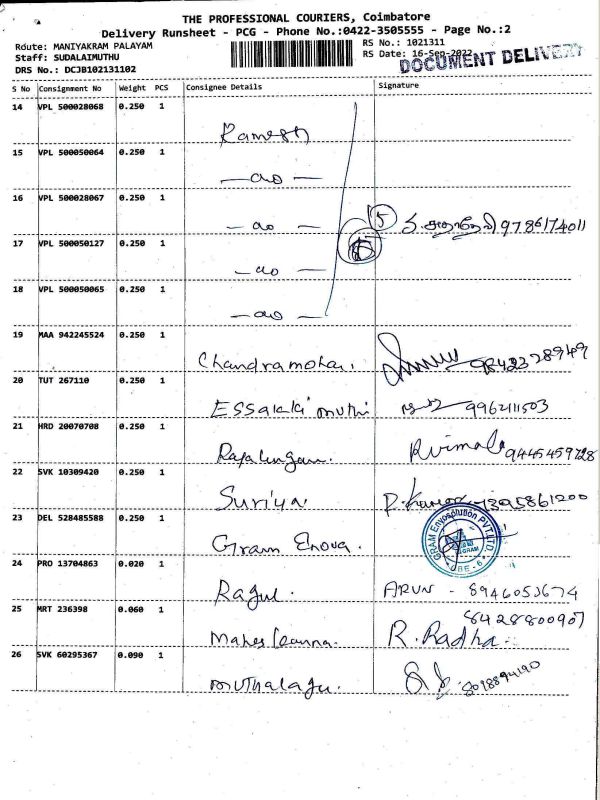 THE PROFESSIONAL COURIERS, Coimbatore
Delivery Runsheet - PCG - Phone No.:0422-3505555 - Page No.:2
Route: MANIYAKRAM PALAYAM
RS No.: 1021311
Staff: SUDALAIMUTHU
RS Date: 16-Sep-2022
DOCUMENT DELIVERY
DRS No.: DCJB102131102
S No Consignment No Weight PCS Consignee Details Signature
14 VPL 500028068 0.250 1 Ramesh
15 VPL 500050064 0.250 1 — do —
16 VPL 500028067 0.250 1 — do — 5 9786174011
17 VPL 500050127 0.250 1 — do —
18 VPL 500050065 0.250 1 — do —
19 MAA 942245524 0.250 1 Chandramohan. 9842328949
20 TUT 267110 0.250 1 Essakki muthu 9962111503
21 HRD 20070708 0.250 1 Rajalingam. R vimala 9445459728
22 SVK 10309420 0.250 1 Suriya
23 DEL 528485588 0.250 1 Gram Enova. GRAM Envosolution PVT.LTD. CBE - 6
24 PRO 13704863 0.020 1 Ragul. ARUN - 8946053674
25 MRT 236398 0.060 1 R. Radha 8428800907
26 SVK 60295367 0.090 1 muthalagu.